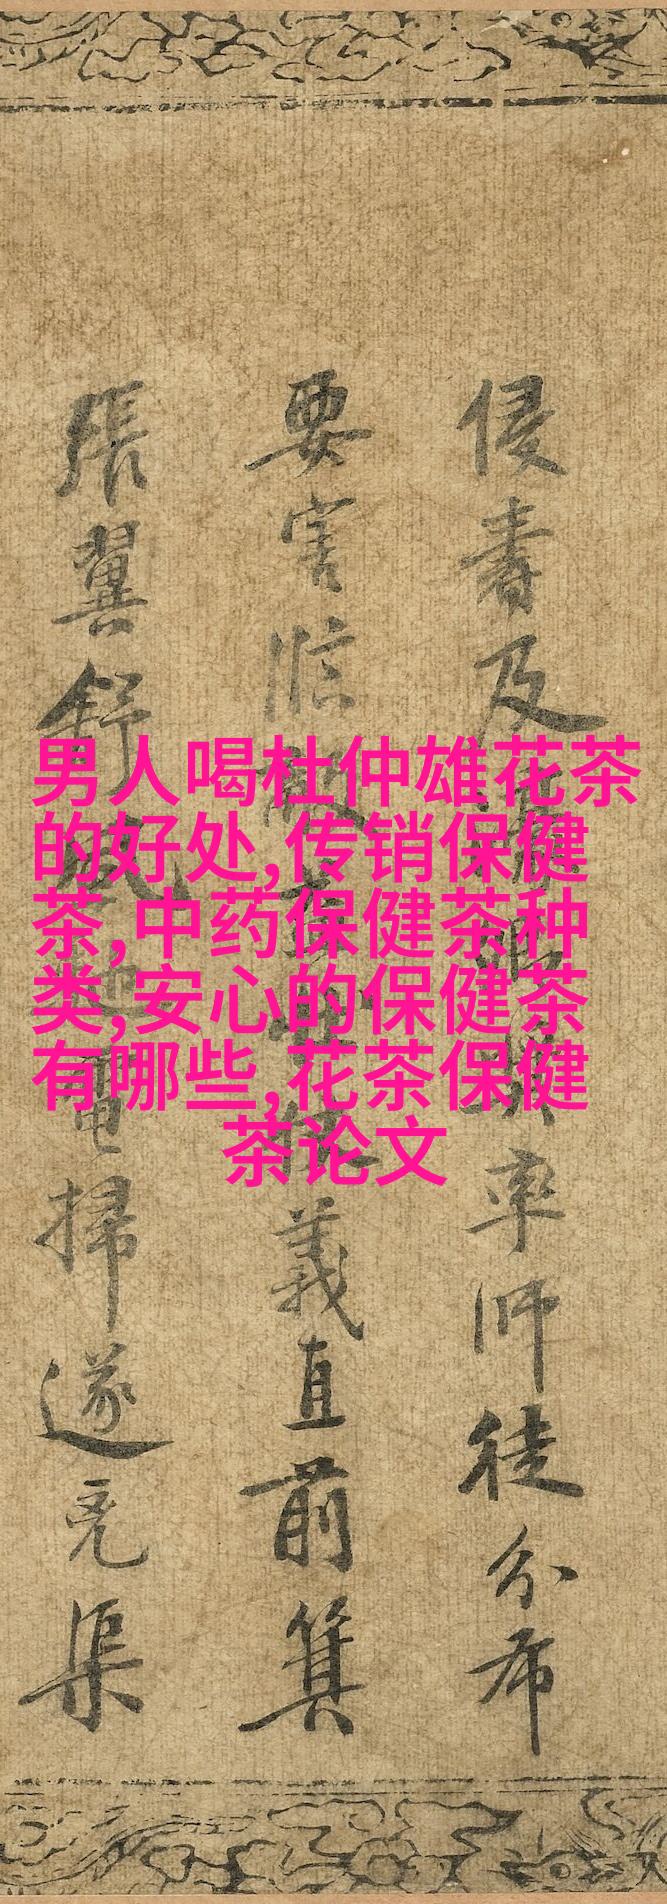 男人喝杜仲雄花茶
的好处,传销保健
茶,中药保健茶种
类,安心的保健茶
有哪些,花茶保健
茶论文
侵書及率師徒分布
要害臨義直前箕
張翼舒電掃遂渠